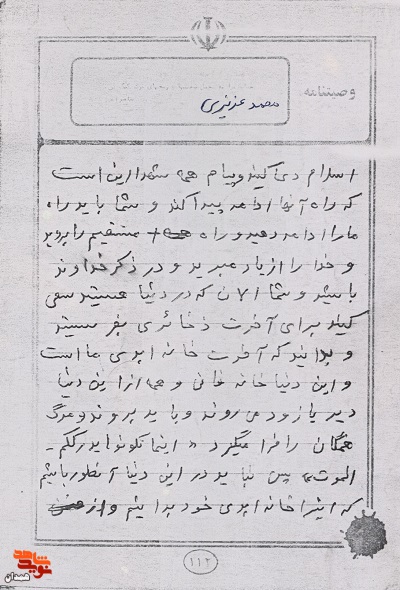 وصیتنامه:
محمد عزیزی
اسلام می کنند و پیام همه شهدا این است
که راه آنها ادامه پیدا کند و شما باید راه
ما را ادامه دهید و راه مستقیم را بروید
و خدا را از یاد مبرید و در ذکر خداوند
باشید و شما الان که در دنیا هستید سعی
کنید برای آخرت ذخائری بفرستید
و بدانید که آخرت خانه ابدی ما است
و این دنیا خانه فانی و همه از این دنیا
دیر یا زود می روند و باید بروند و مرگ
همگان را فرا میگیرد « اینما تکونوا یدرککم
الموت» پس نباید در این دنیا آنطور باشیم
که اینرا خانه ابدی خود بدانیم و از
۱۱۲
نوید شاهد